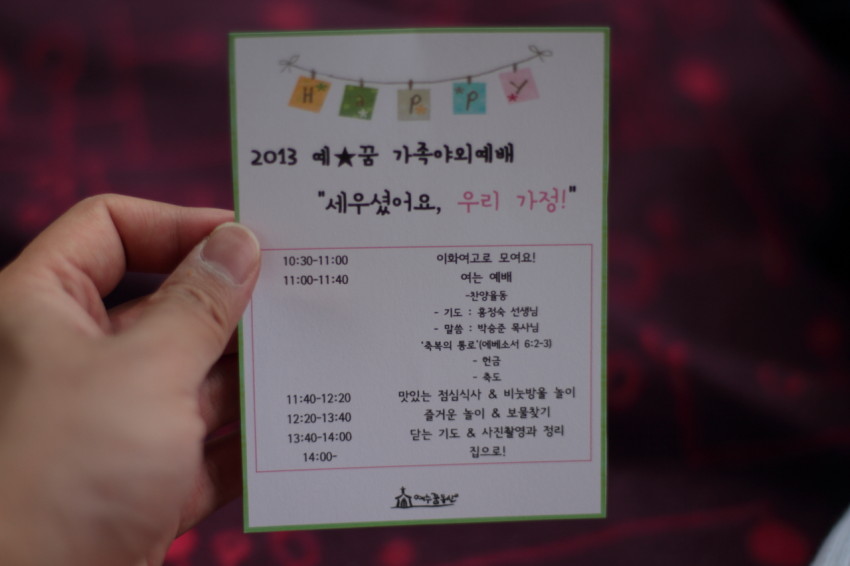 HAPPY
2013 예★꿈 가족야외예배
"세우셨어요, 우리 가정!"
10:30-11:00 이화여고로 모여요!
11:00-11:40 여는 예배
-찬양율동
- 기도 : 홍정숙 선생님
- 말씀 : 박승준 목사님
'축복의 통로'(에베소서 6:2-3)
- 헌금
- 축도
11:40-12:20 맛있는 점심식사 & 비눗방울 놀이
12:20-13:40 즐거운 놀이 & 보물찾기
13:40-14:00 닫는 기도 & 사진촬영과 정리
14:00- 집으로!